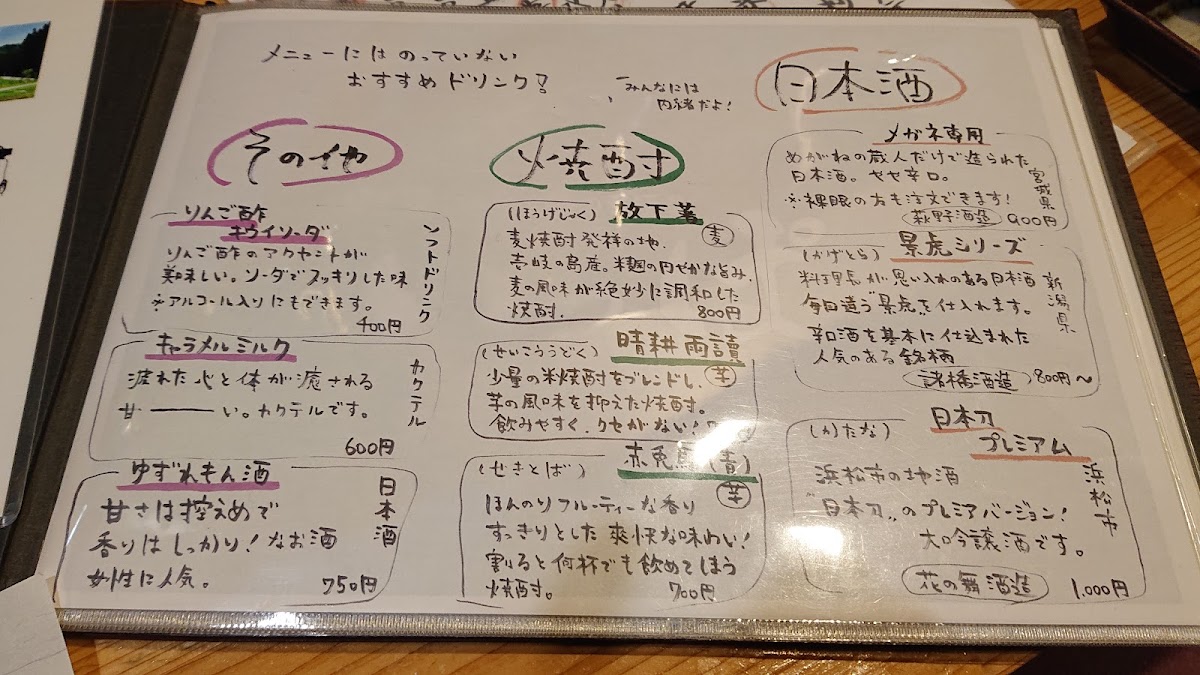 メニューにはのっていない
おすすめドリンク!?
みんなには
内緒だよ!
日本酒
メガネ専用
めがねの蔵人だけで造られた
日本酒。やや辛口。
※裸眼の方も注文できます!
宮城県
萩野酒造 900円
(かげとら) 景虎シリーズ
料理長が思い入れのある日本酒
毎日違う"景虎"を仕入れます。
辛口酒を基本に仕込まれた
人気のある銘柄
新潟県
諸橋酒造 800円～
(かたな) 日本刀
プレミアム
浜松市の地酒
"日本刀"のプレミアバージョン!
大吟醸酒です。
浜松市
花の舞酒造 1,000円
焼酎
(ほうげじゃく) 放下著
麦
麦焼酎発祥の地、
壱岐の島産。米麹の円やかな旨み、
麦の風味が絶妙に調和した
焼酎。 800円
(せいこううどく) 晴耕雨讀
芋
少量の米焼酎をブレンドし、
芋の風味を抑えた焼酎。
飲みやすく、クセがない!
(せきとば) 赤兎馬(青)
芋
ほんのりフルーティーな香り
すっきりとした爽快な味わい!
割ると何杯でも飲めてしまう
焼酎。 700円
その他
りんご酢
キウイソーダ
ソフトドリンク
りんご酢のアクセントが
美味しい。ソーダでスッキリした味
※アルコール入りにもできます。
400円
キャラメルミルク
カクテル
疲れた心と体が癒される
甘――い。カクテルです。
600円
ゆずれもん酒
日本酒
甘さは控えめで
香りはしっかり!なお酒
女性に人気。 750円